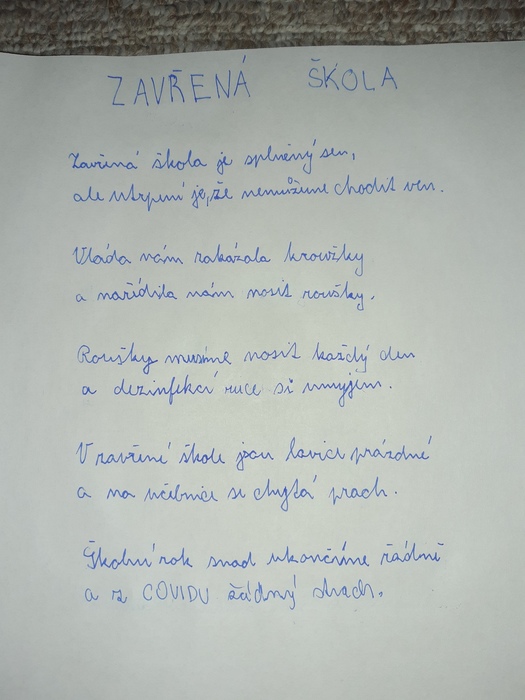 ZAVŘENÁ ŠKOLA
Zavřená škola je splněný sen,
ale utrpení je, že nemůžeme chodit ven.
Vláda nám zakázala kroužky
a nařídila nám nosit roušky.
Roušky musíme nosit každý den
a dezinfekcí ruce si umyjem.
V zavřené škole jsou lavice prázdné
a na učebnice se chytá prach.
Školní rok snad ukončíme řádně
a z COVIDU žádný strach.